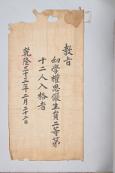 教旨
幼學權思儆生員三等第
十二人入格者
乾隆三十三年二月二十二日